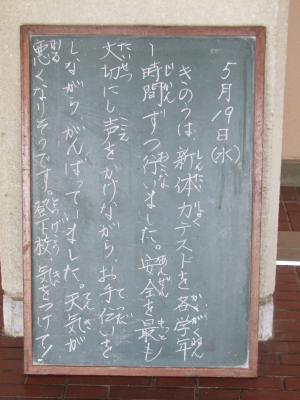 5月19日(水)
きのうは、新体力テストを各学年
1時間ずつ行いました。安全を最も
大切にし声をかけながら、お手伝いを
しながら、がんばっていました。天気が
悪くなりそうです。登下校、気をつけて!